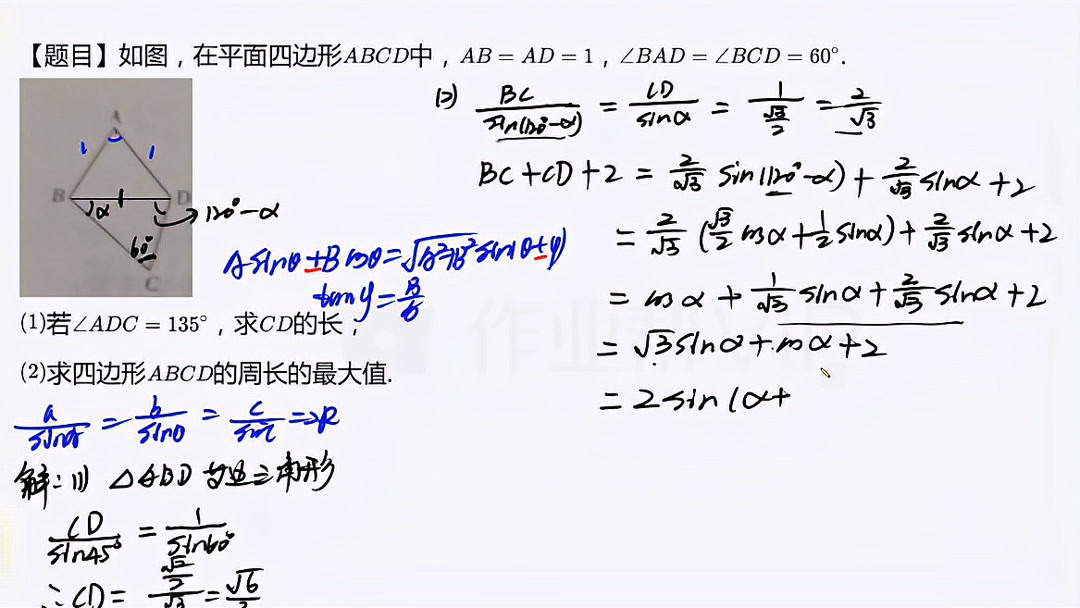 【题目】如图，在平面四边形ABCD中，AB=AD=1，∠BAD=∠BCD=60°.
A
1 1
B D
α
120°-α
60°
C
Asinθ±Bcosθ=√(A²+B²)sin(θ±φ)
tanφ=
(1)若∠ADC=135°，求CD的长；
(2)求四边形ABCD的周长的最大值.
a/sinA=b/sinB=c/sinC=2R
解:(1) △ABD为正三角形
CD/sin45°=1/sin60°
∴CD=(√2/2)/(√3/2)=√6/3
(2) BC/sin(120°-α)=CD/sinα=1/(√3/2)=2/√3
BC+CD+2=2/√3 sin(120°-α)+2/√3 sinα+2
=2/√3(√3/2 cosα+1/2 sinα)+2/√3 sinα+2
=cosα+1/√3 sinα+2/√3 sinα+2
=√3sinα+cosα+2
=2sin(α+
作业帮